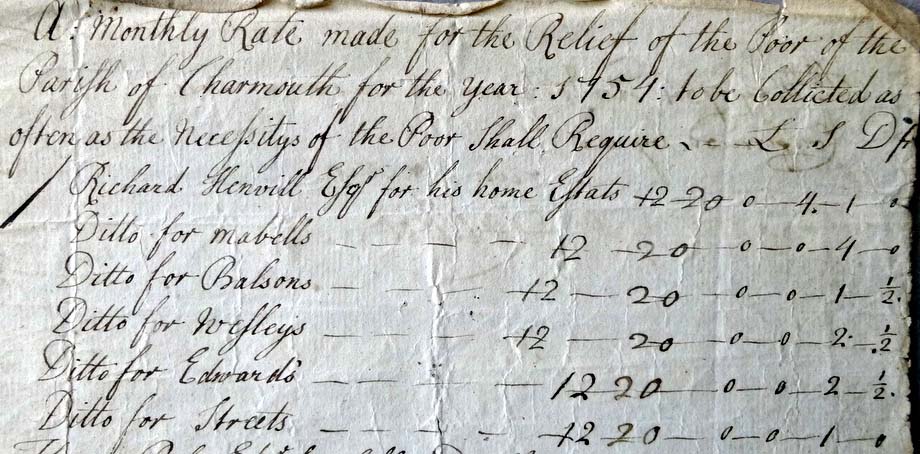 A: Monthly Rate made for the Relief of the Poor of the
Parish of Charmouth for the Year: 1754: to be Collicted as
often as the Necessitys of the Poor Shall Require L S D
Richard Henvill Esqr for his home Estats 12 20 0 4 1 0
Ditto for mabells 12 20 0 0 4 0
Ditto for Balsons 12 20 0 0 1 1/2
Ditto for Wesleys 12 20 0 0 2 1/2
Ditto for Edwards 12 20 0 0 2 1/2
Ditto for Streets 12 20 0 0 1 0